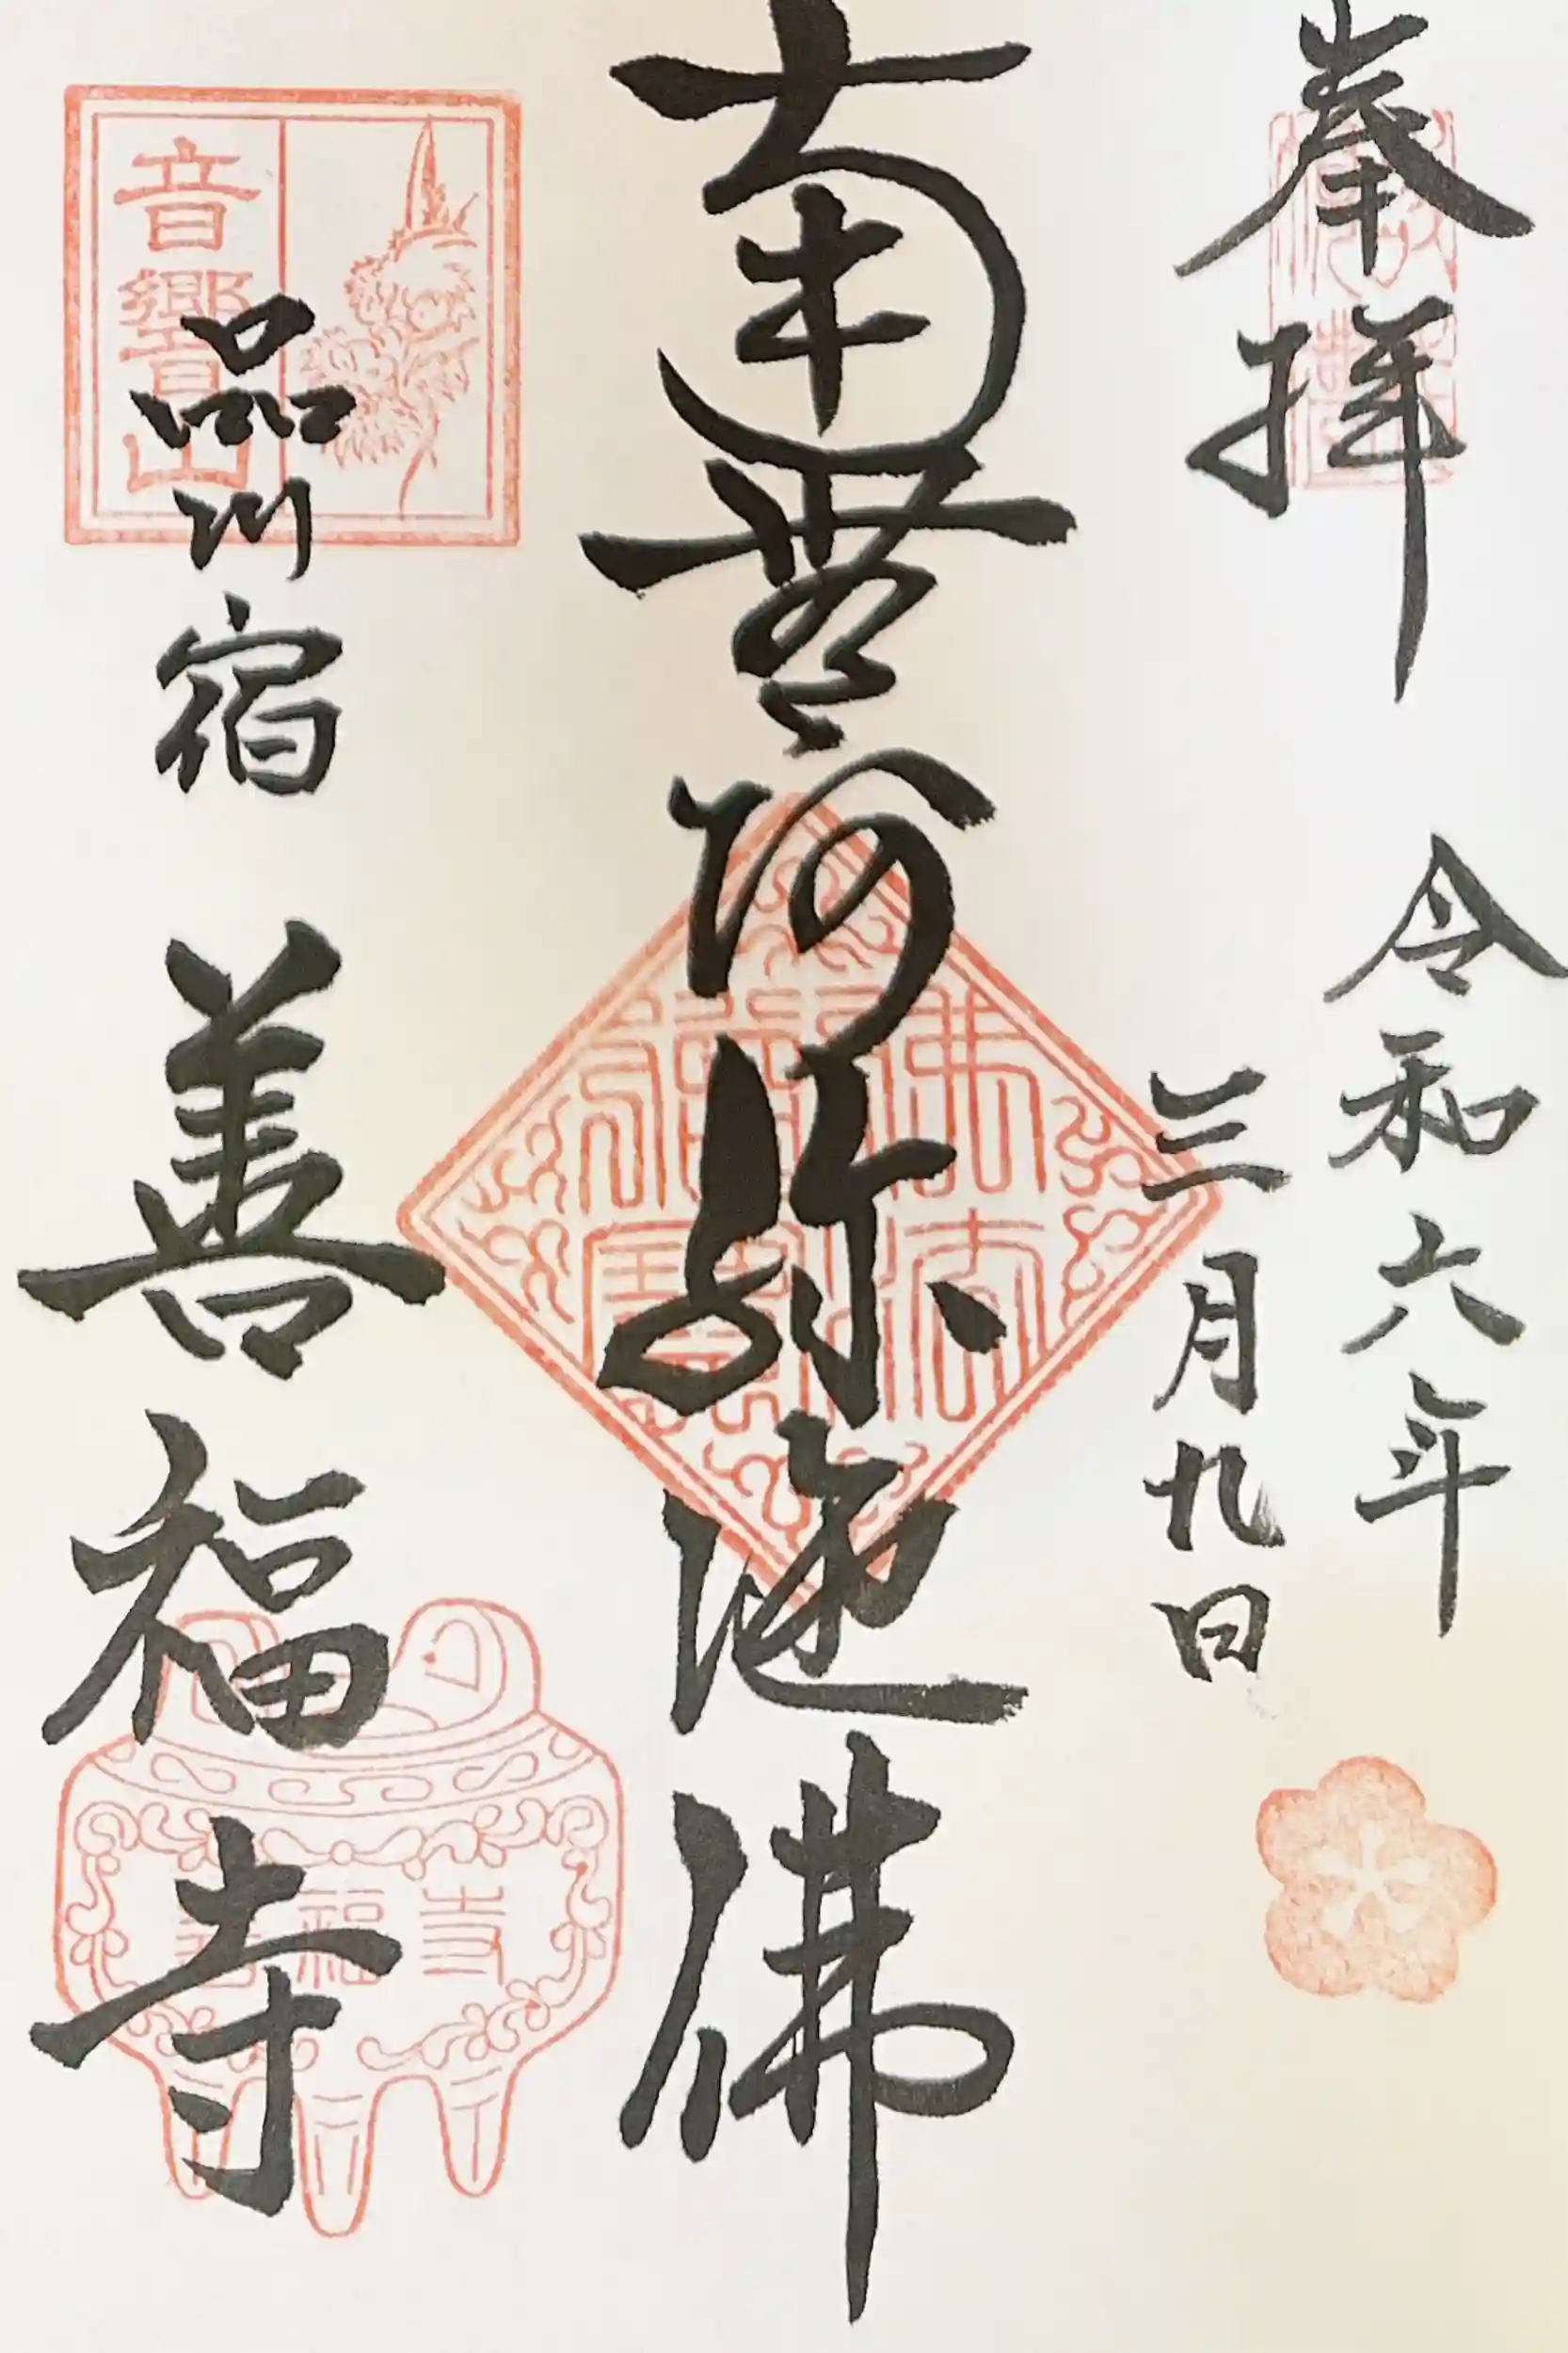 奉拝
令和六年
三月九日
南無阿弥陀佛
品川宿 善福寺
音響山
善福寺